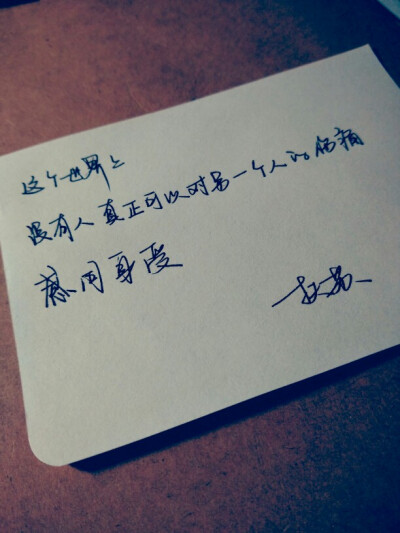 这个世界上
没有人真正可以对另一个人的伤痛
感同身受